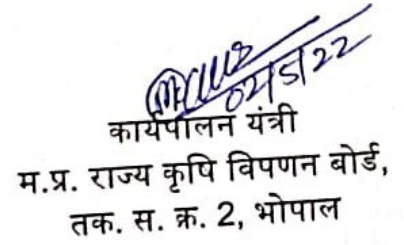 02/5/22
कार्यपालन यंत्री
म.प्र. राज्य कृषि विपणन बोर्ड,
तक. स. क्र. 2, भोपाल